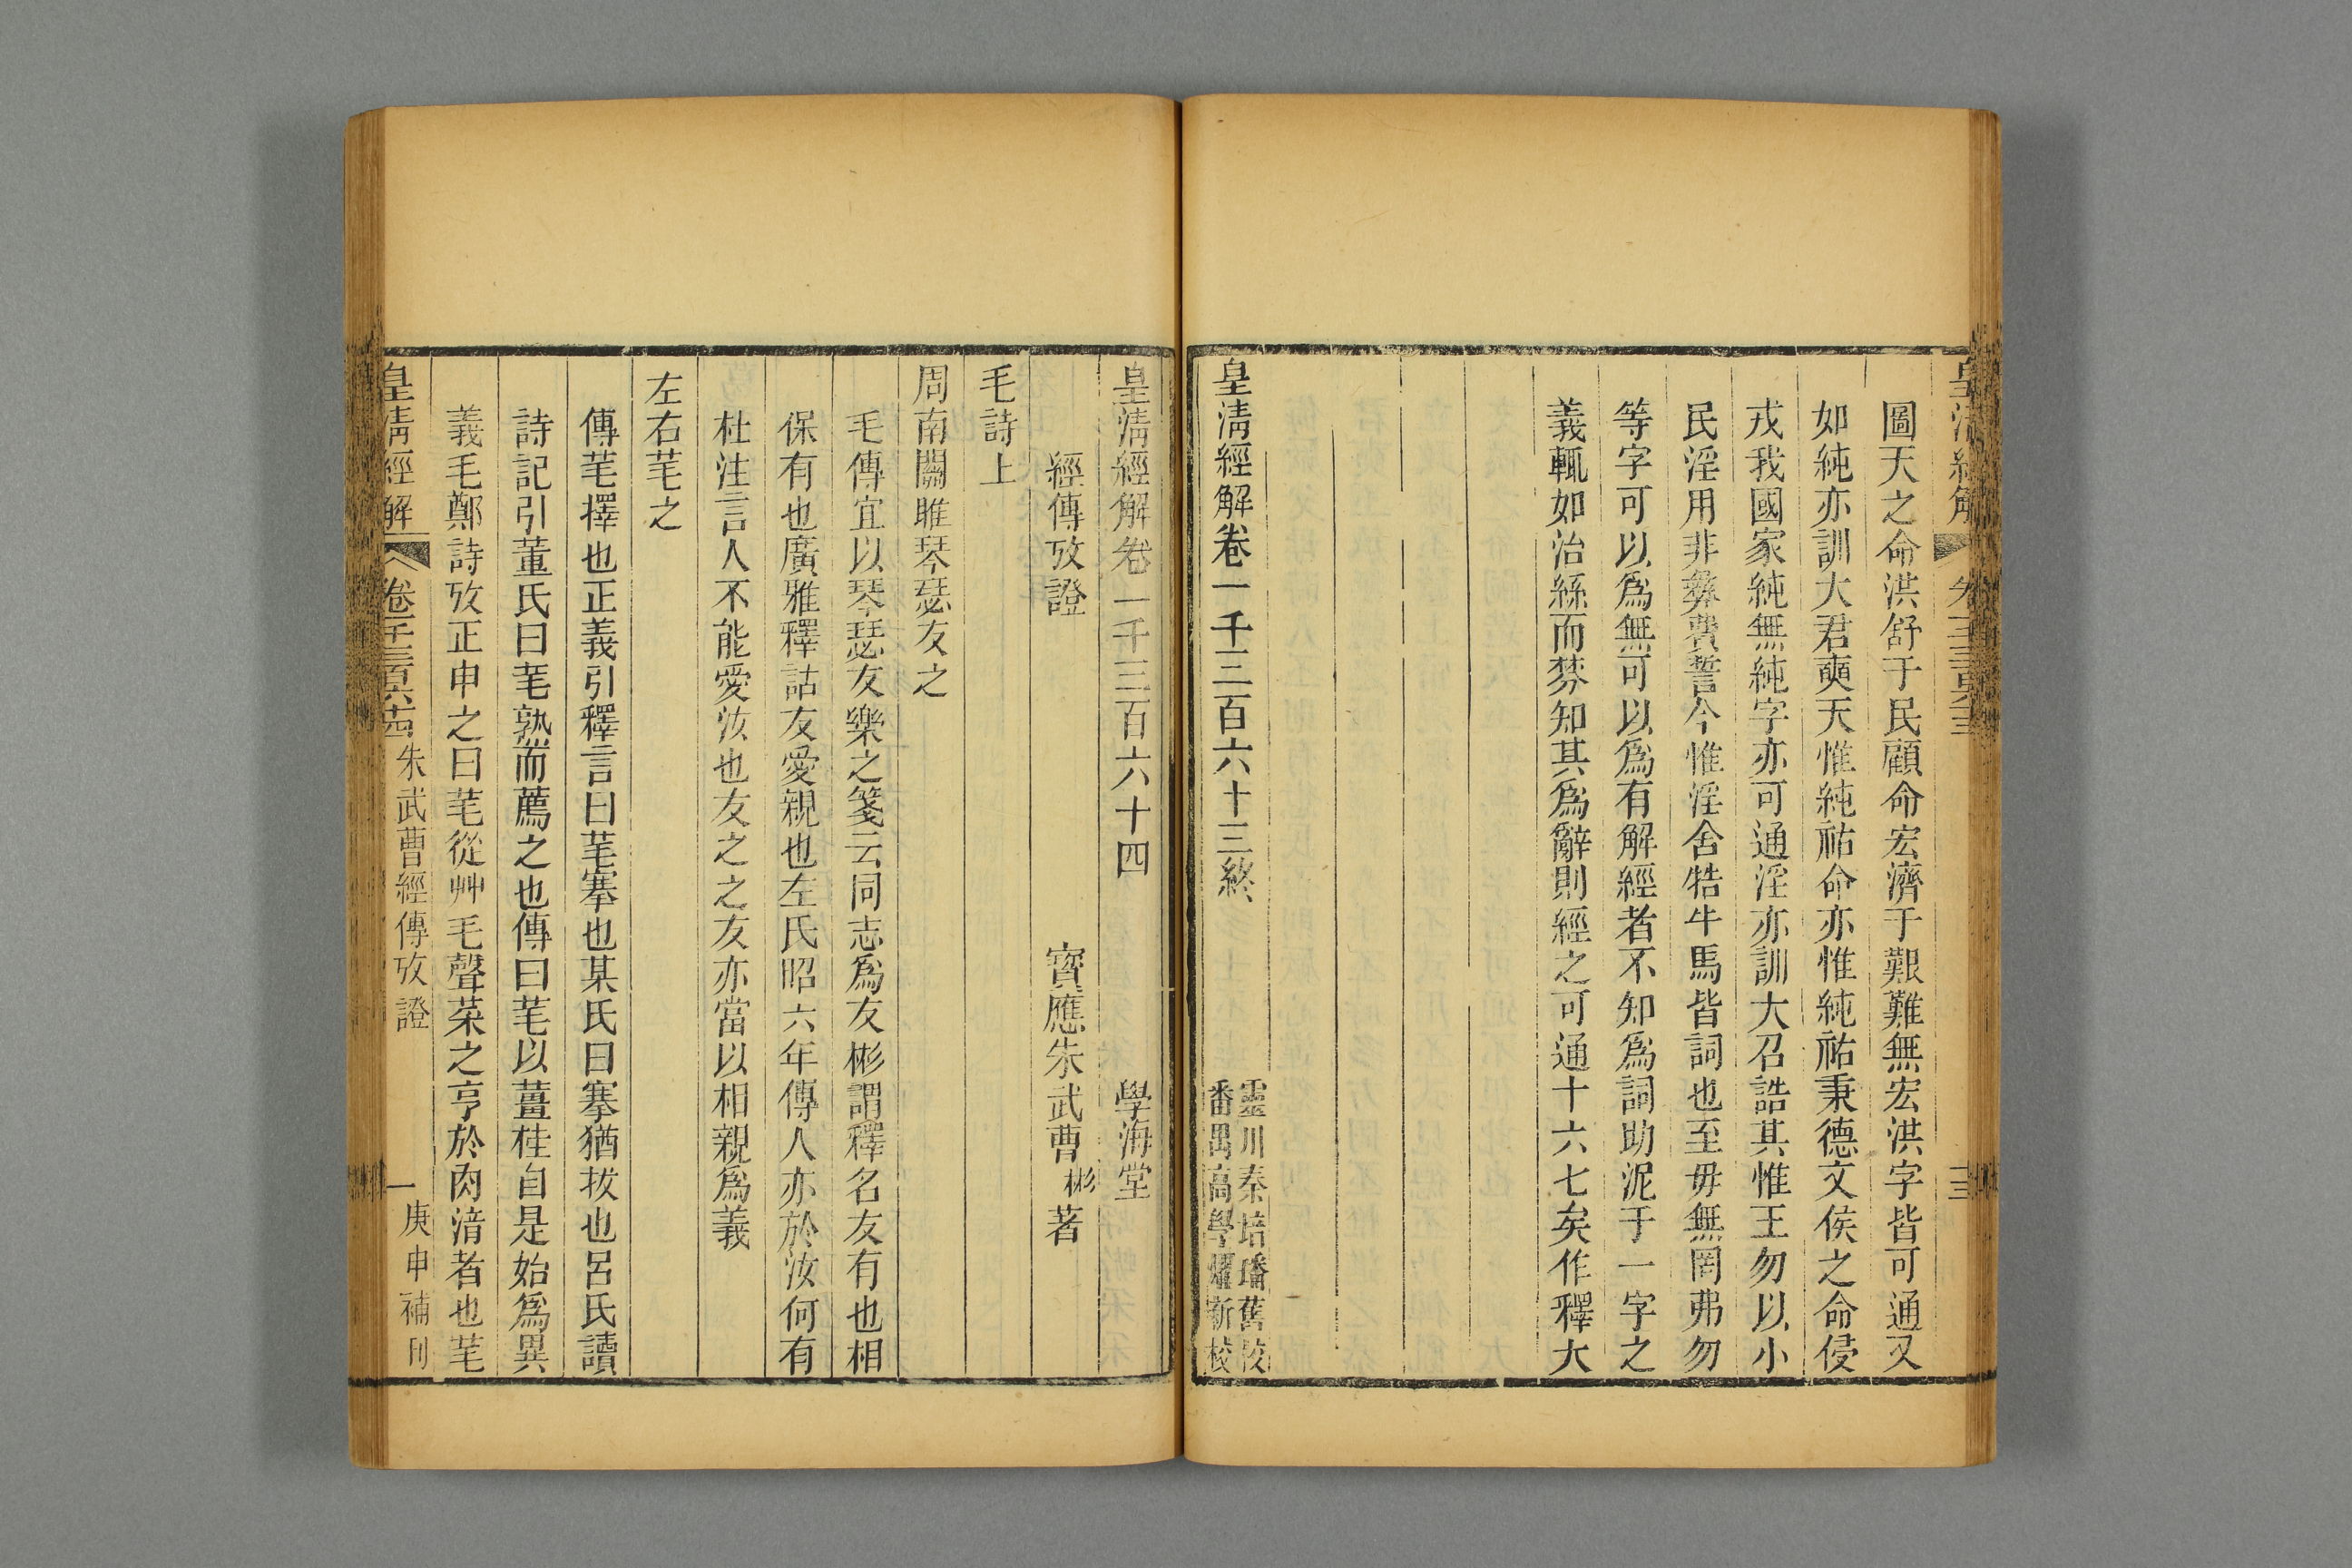 圖天之命洪舒于民顧命宏濟于艱難無宏洪字皆可通又
如純亦訓大君奭天惟純祐命亦惟純祐秉德文侯之命侵
戎我國家純無純字亦可通淫亦訓大召誥其惟王勿以小
民淫用非彝費誓今惟淫舍牿牛馬皆詞也至毋無罔弗勿
等字可以爲無可以爲有解經者不知爲詞助泥于一字之
義輒如治絲而棼知其爲辭則經之可通十六七矣作釋大
靈川秦培璠舊校
皇清經解卷一千三百六十三終
番禺高學燿新校
皇清經解卷一千三百六十四
學海堂
經傳攷證
寶應朱武曹彬著
毛詩上
周南關雎琴瑟友之
毛傳宜以琴瑟友樂之箋云同志爲友彬謂釋名友有也相
保有也廣雅釋詁友愛親也左氏昭六年傳人亦於汝何有
杜注言人不能愛汝也友之之友亦當以相親爲義
左右芼之
傳芼擇也正義引釋言曰芼搴也某氏曰搴猶拔也呂氏讀
詩記引董氏曰芼熟而薦之也傳曰芼以薑桂自是始爲異
義毛鄭詩攷正申之曰芼從艸毛聲菜之亨於肉湆者也芼
皇清經解
卷千三百六十四
朱武曹經傳攷證
一
庚申補刊